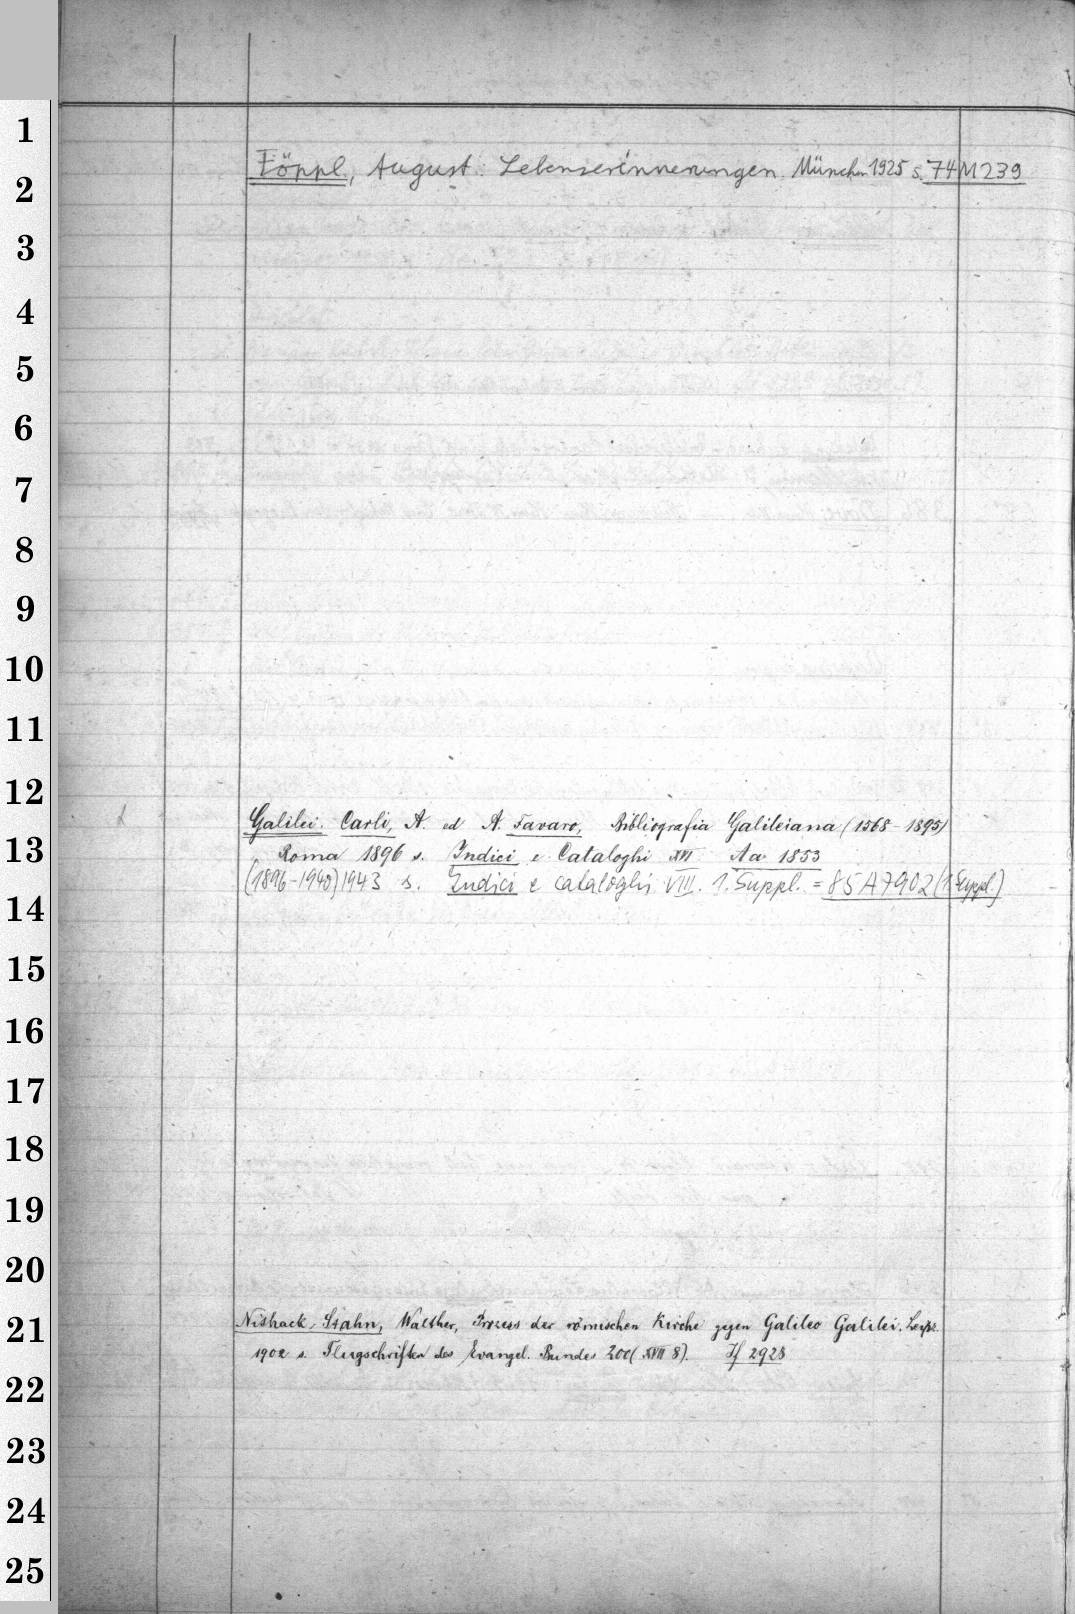 1
2
3
4
5
6
7
8
9
10
11
12
13
14
15
16
17
18
19
20
21
22
23
24
25
Föppl, August: Lebenserinnerungen. München 1925 s. 74 M 239
Galilei. Carli, A. ed A. Favaro, Bibliografia Galileiana (1568-1895)
Roma 1896 s. Indici e Cataloghi XVI Aa 1853
(1896-1940) 1943 s. Indici e cataloghi VIII. 1. Suppl. = 85 A 7902 (1. Suppl.)
Nithack-Stahn, Walther, Prozess der römischen Kirche gegen Galileo Galilei. Leipz.
1902 s. Flugschriften des Evangel. Bundes 200 (XVII 8). If 2928